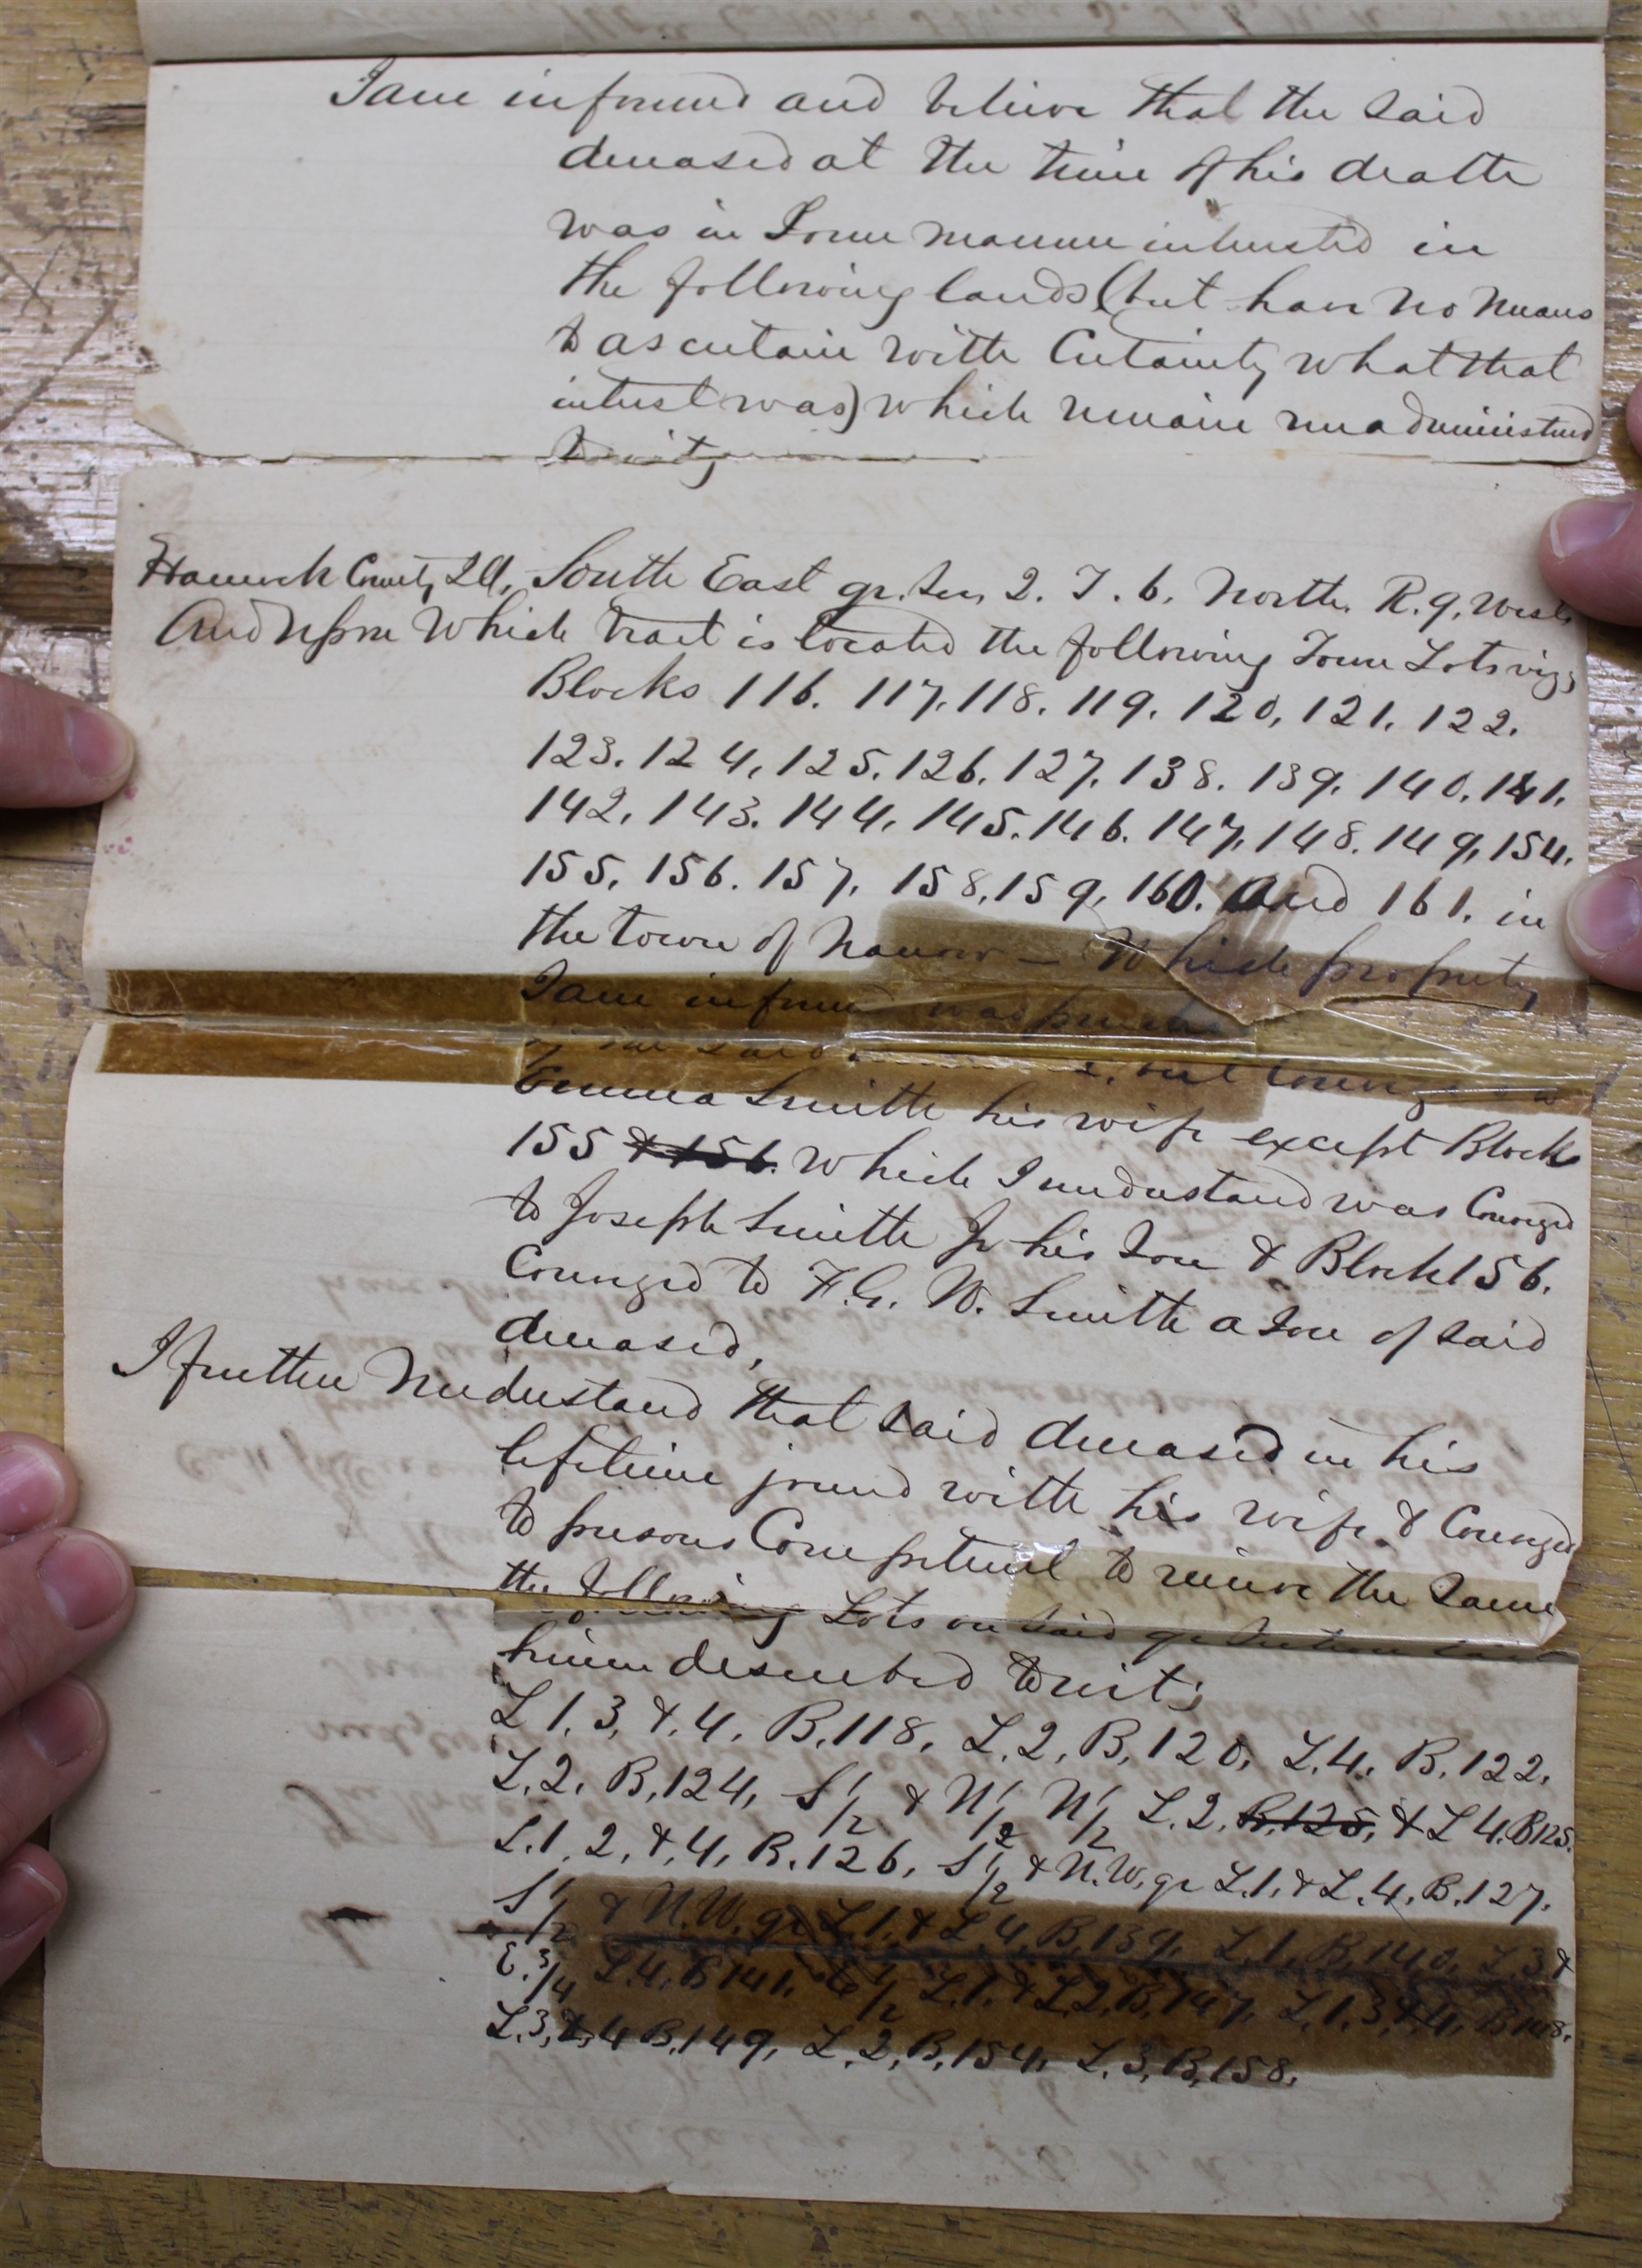 I am informed and believe that the said
deceased at the time of his death
was in Some manner interested in
the following lands (but have no means
to ascertain with Certainty what that
interest was) which remain unadministered
towit;
Hancock County Ill, South East qr. Sec, 2. T. 6. North. R. 9, West,
And upon Which tract is located the following Town Lots viz;
Blocks 116. 117. 118. 119. 120, 121. 122.
123. 124, 125. 126. 127. 138. 139. 140. 141.
142, 143. 144. 145. 146. 147, 148. 149, 154.
155, 156. 157, 158, 159, 160. and 161. in
the town of Nauvoo — Which property
I am informed was purchased
by the said but Conveyed to
Emma Smith his wife except Block
155 & 156. Which I understand was Conveyed
to Joseph Smith Jr his Son & Block 156.
Conveyed to F. G. W. Smith a Son of said
deceased,
I further Understand that said deceased in his
lifetime joined with his wife & Conveyed
to persons Competent to receive the same
the following Lots on said qr Section last
herein described towit;
L 1. 3, &. 4. B. 118. L. 2, B, 120, L. 4. B. 122.
L. 2. B, 124, S 1/2 & N 1/2 N 1/2 L. 2, B. 125, & L 4. B 125.
L. 1, 2, &. 4, B. 126, S 1/2 & N. W, qr L. 1. & L. 4. B. 127.
S 1/2 & N. W. qr L. 1, & L. 4, B. 139, L. 1, B. 140, L. 3 &
E. 3/4 L. 4. B 141, 1/2 L. 1. & L. 2. B. 147, L. 1. 3, &. 4, B 148.
L. 3, & 4 B. 149, L. 2, B, 154, L. 3, B, 158.